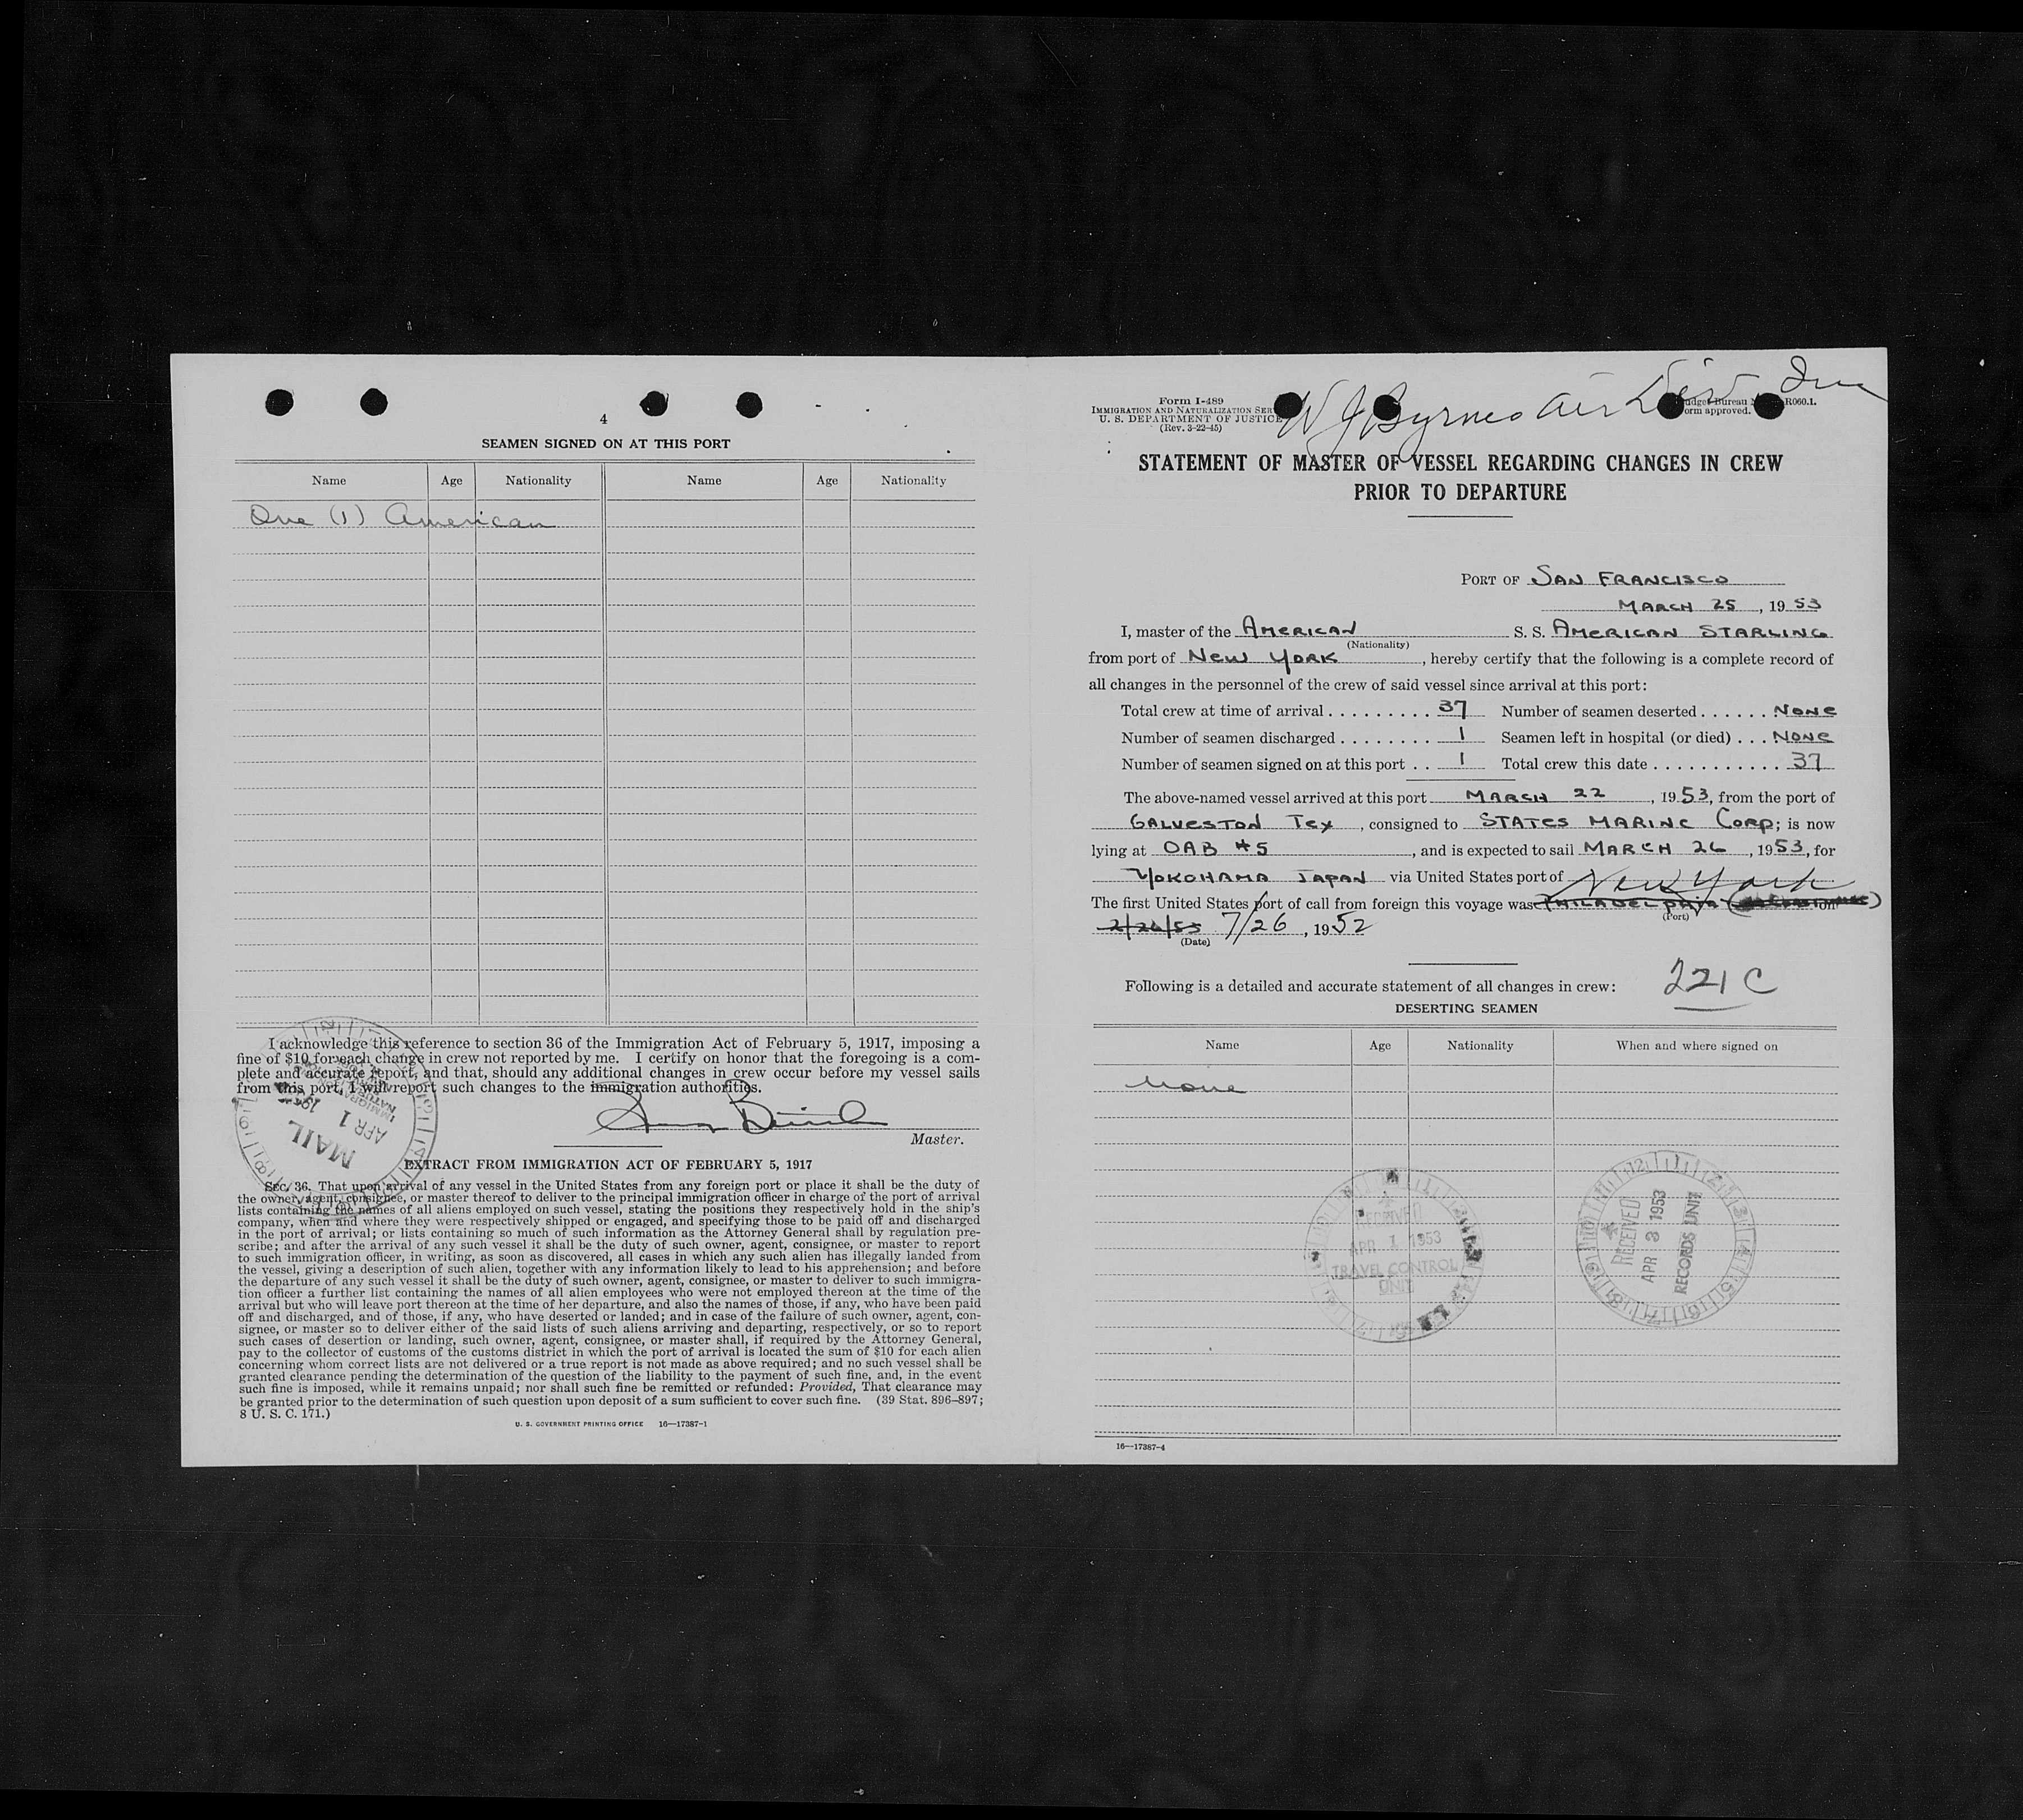 4
SEAMEN SIGNED ON AT THIS PORT
Name Age Nationality Name Age Nationality
One (1) American
I acknowledge this reference to section 36 of the Immigration Act of February 5, 1917, imposing a
fine of $10 for each change in crew not reported by me. I certify on honor that the foregoing is a com-
plete and accurate report, and that, should any additional changes in crew occur before my vessel sails
from this port, I will report such changes to the immigration authorities.
Master.
MAIL
APR 1
EXTRACT FROM IMMIGRATION ACT OF FEBRUARY 5, 1917
Sec. 36. That upon arrival of any vessel in the United States from any foreign port or place it shall be the duty of
the owner, agent, consignee, or master thereof to deliver to the principal immigration officer in charge of the port of arrival
lists containing the names of all aliens employed on such vessel, stating the positions they respectively hold in the ship's
company, when and where they were respectively shipped or engaged, and specifying those to be paid off and discharged
in the port of arrival; or lists containing so much of such information as the Attorney General shall by regulation pre-
scribe; and after the arrival of any such vessel it shall be the duty of such owner, agent, consignee, or master to report
to such immigration officer, in writing, as soon as discovered, all cases in which any such alien has illegally landed from
the vessel, giving a description of such alien, together with any information likely to lead to his apprehension; and before
the departure of any such vessel it shall be the duty of such owner, agent, consignee, or master to deliver to such immigra-
tion officer a further list containing the names of all alien employees who were not employed thereon at the time of the
arrival but who will leave port thereon at the time of her departure, and also the names of those, if any, who have been paid
off and discharged, and of those, if any, who have deserted or landed; and in case of the failure of such owner, agent, con-
signee, or master so to deliver either of the said lists of such aliens arriving and departing, respectively, or so to report
such cases of desertion or landing, such owner, agent, consignee, or master shall, if required by the Attorney General,
pay to the collector of customs of the customs district in which the port of arrival is located the sum of $10 for each alien
concerning whom correct lists are not delivered or a true report is not made as above required; and no such vessel shall be
granted clearance pending the determination of the question of the liability to the payment of such fine, and, in the event
such fine is imposed, while it remains unpaid; nor shall such fine be remitted or refunded: Provided, That clearance may
be granted prior to the determination of such question upon deposit of a sum sufficient to cover such fine. (39 Stat. 896–897;
8 U. S. C. 171.)
U. S. GOVERNMENT PRINTING OFFICE 16—17387-1
Form I-489
IMMIGRATION AND NATURALIZATION SER
U. S. DEPARTMENT OF JUSTICE
(Rev. 3-22-45)
W J Byrnes Air Dist
Budget Bureau R060.1.
orm approved.
STATEMENT OF MASTER OF VESSEL REGARDING CHANGES IN CREW
PRIOR TO DEPARTURE
PORT OF SAN FRANCISCO
MARCH 25, 1953
I, master of the AMERICAN S. S. AMERICAN STARLING
(Nationality)
from port of NEW YORK, hereby certify that the following is a complete record of
all changes in the personnel of the crew of said vessel since arrival at this port:
Total crew at time of arrival . . . . . . . . . 37 Number of seamen deserted . . . . . . NONE
Number of seamen discharged . . . . . . . . 1 Seamen left in hospital (or died) . . . NONE
Number of seamen signed on at this port . . 1 Total crew this date . . . . . . . . . . . 37
The above-named vessel arrived at this port MARCH 22, 1953, from the port of
GALVESTON TEX, consigned to STATES MARINE CORP; is now
lying at OAB #5, and is expected to sail MARCH 26, 1953, for
YOKOHAMA JAPAN via United States port of
New York
The first United States port of call from foreign this voyage was PHILADELPHIA on
(Port)
2/26/53 7/26, 1952
(Date)
Following is a detailed and accurate statement of all changes in crew: 221 C
DESERTING SEAMEN
Name Age Nationality When and where signed on
None
RECEIVED
APR 1 1953
TRAVEL CONTROL
UNIT
RECEIVED
APR 3 1953
RECORDS UNIT
16—17387-4